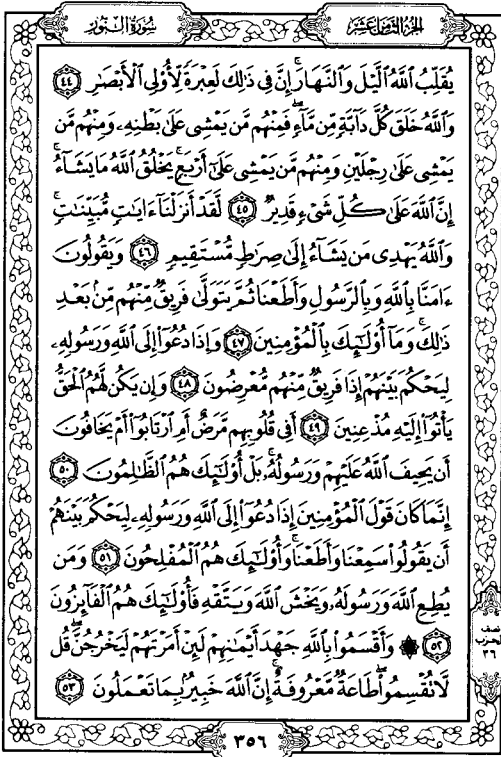 سُورَةُ النُّورِ
الجُزْءُ الثَّامِنُ عَشَرَ
يُقَلِّبُ ٱللَّهُ ٱلَّيْلَ وَٱلنَّهَارَ ۚ إِنَّ فِى ذَٰلِكَ لَعِبْرَةً لِّأُو۟لِى ٱلْأَبْصَٰرِ ٤٤
وَٱللَّهُ خَلَقَ كُلَّ دَآبَّةٍ مِّن مَّآءٍ ۖ فَمِنْهُم مَّن يَمْشِى عَلَىٰ بَطْنِهِۦ وَمِنْهُم مَّن
يَمْشِى عَلَىٰ رِجْلَيْنِ وَمِنْهُم مَّن يَمْشِى عَلَىٰٓ أَرْبَعٍ ۚ يَخْلُقُ ٱللَّهُ مَا يَشَآءُ ۚ
إِنَّ ٱللَّهَ عَلَىٰ كُلِّ شَىْءٍ قَدِيرٌ ٤٥ لَّقَدْ أَنزَلْنَآ ءَايَٰتٍ مُّبَيِّنَٰتٍ ۚ
وَٱللَّهُ يَهْدِى مَن يَشَآءُ إِلَىٰ صِرَٰطٍ مُّسْتَقِيمٍ ٤٦ وَيَقُولُونَ
ءَامَنَّا بِٱللَّهِ وَبِٱلرَّسُولِ وَأَطَعْنَا ثُمَّ يَتَوَلَّىٰ فَرِيقٌ مِّنْهُم مِّنۢ بَعْدِ
ذَٰلِكَ ۚ وَمَآ أُو۟لَٰٓئِكَ بِٱلْمُؤْمِنِينَ ٤٧ وَإِذَا دُعُوٓا۟ إِلَى ٱللَّهِ وَرَسُولِهِۦ
لِيَحْكُمَ بَيْنَهُمْ إِذَا فَرِيقٌ مِّنْهُم مُّعْرِضُونَ ٤٨ وَإِن يَكُن لَّهُمُ ٱلْحَقُّ
يَأْتُوٓا۟ إِلَيْهِ مُذْعِنِينَ ٤٩ أَفِى قُلُوبِهِم مَّرَضٌ أَمِ ٱرْتَابُوٓا۟ أَمْ يَخَافُونَ
أَن يَحِيفَ ٱللَّهُ عَلَيْهِمْ وَرَسُولُهُۥ ۚ بَلْ أُو۟لَٰٓئِكَ هُمُ ٱلظَّٰلِمُونَ ٥٠
إِنَّمَا كَانَ قَوْلَ ٱلْمُؤْمِنِينَ إِذَا دُعُوٓا۟ إِلَى ٱللَّهِ وَرَسُولِهِۦ لِيَحْكُمَ بَيْنَهُمْ
أَن يَقُولُوا۟ سَمِعْنَا وَأَطَعْنَا ۚ وَأُو۟لَٰٓئِكَ هُمُ ٱلْمُفْلِحُونَ ٥١ وَمَن
يُطِعِ ٱللَّهَ وَرَسُولَهُۥ وَيَخْشَ ٱللَّهَ وَيَتَّقْهِ فَأُو۟لَٰٓئِكَ هُمُ ٱلْفَآئِزُونَ
٥٢ ۞ وَأَقْسَمُوا۟ بِٱللَّهِ جَهْدَ أَيْمَٰنِهِمْ لَئِنْ أَمَرْتَهُمْ لَيَخْرُجُنَّ ۖ قُل
لَّا تُقْسِمُوا۟ ۖ طَاعَةٌ مَّعْرُوفَةٌ ۚ إِنَّ ٱللَّهَ خَبِيرٌۢ بِمَا تَعْمَلُونَ ٥٣
نصف
الحزب
٣٦
٣٥٦